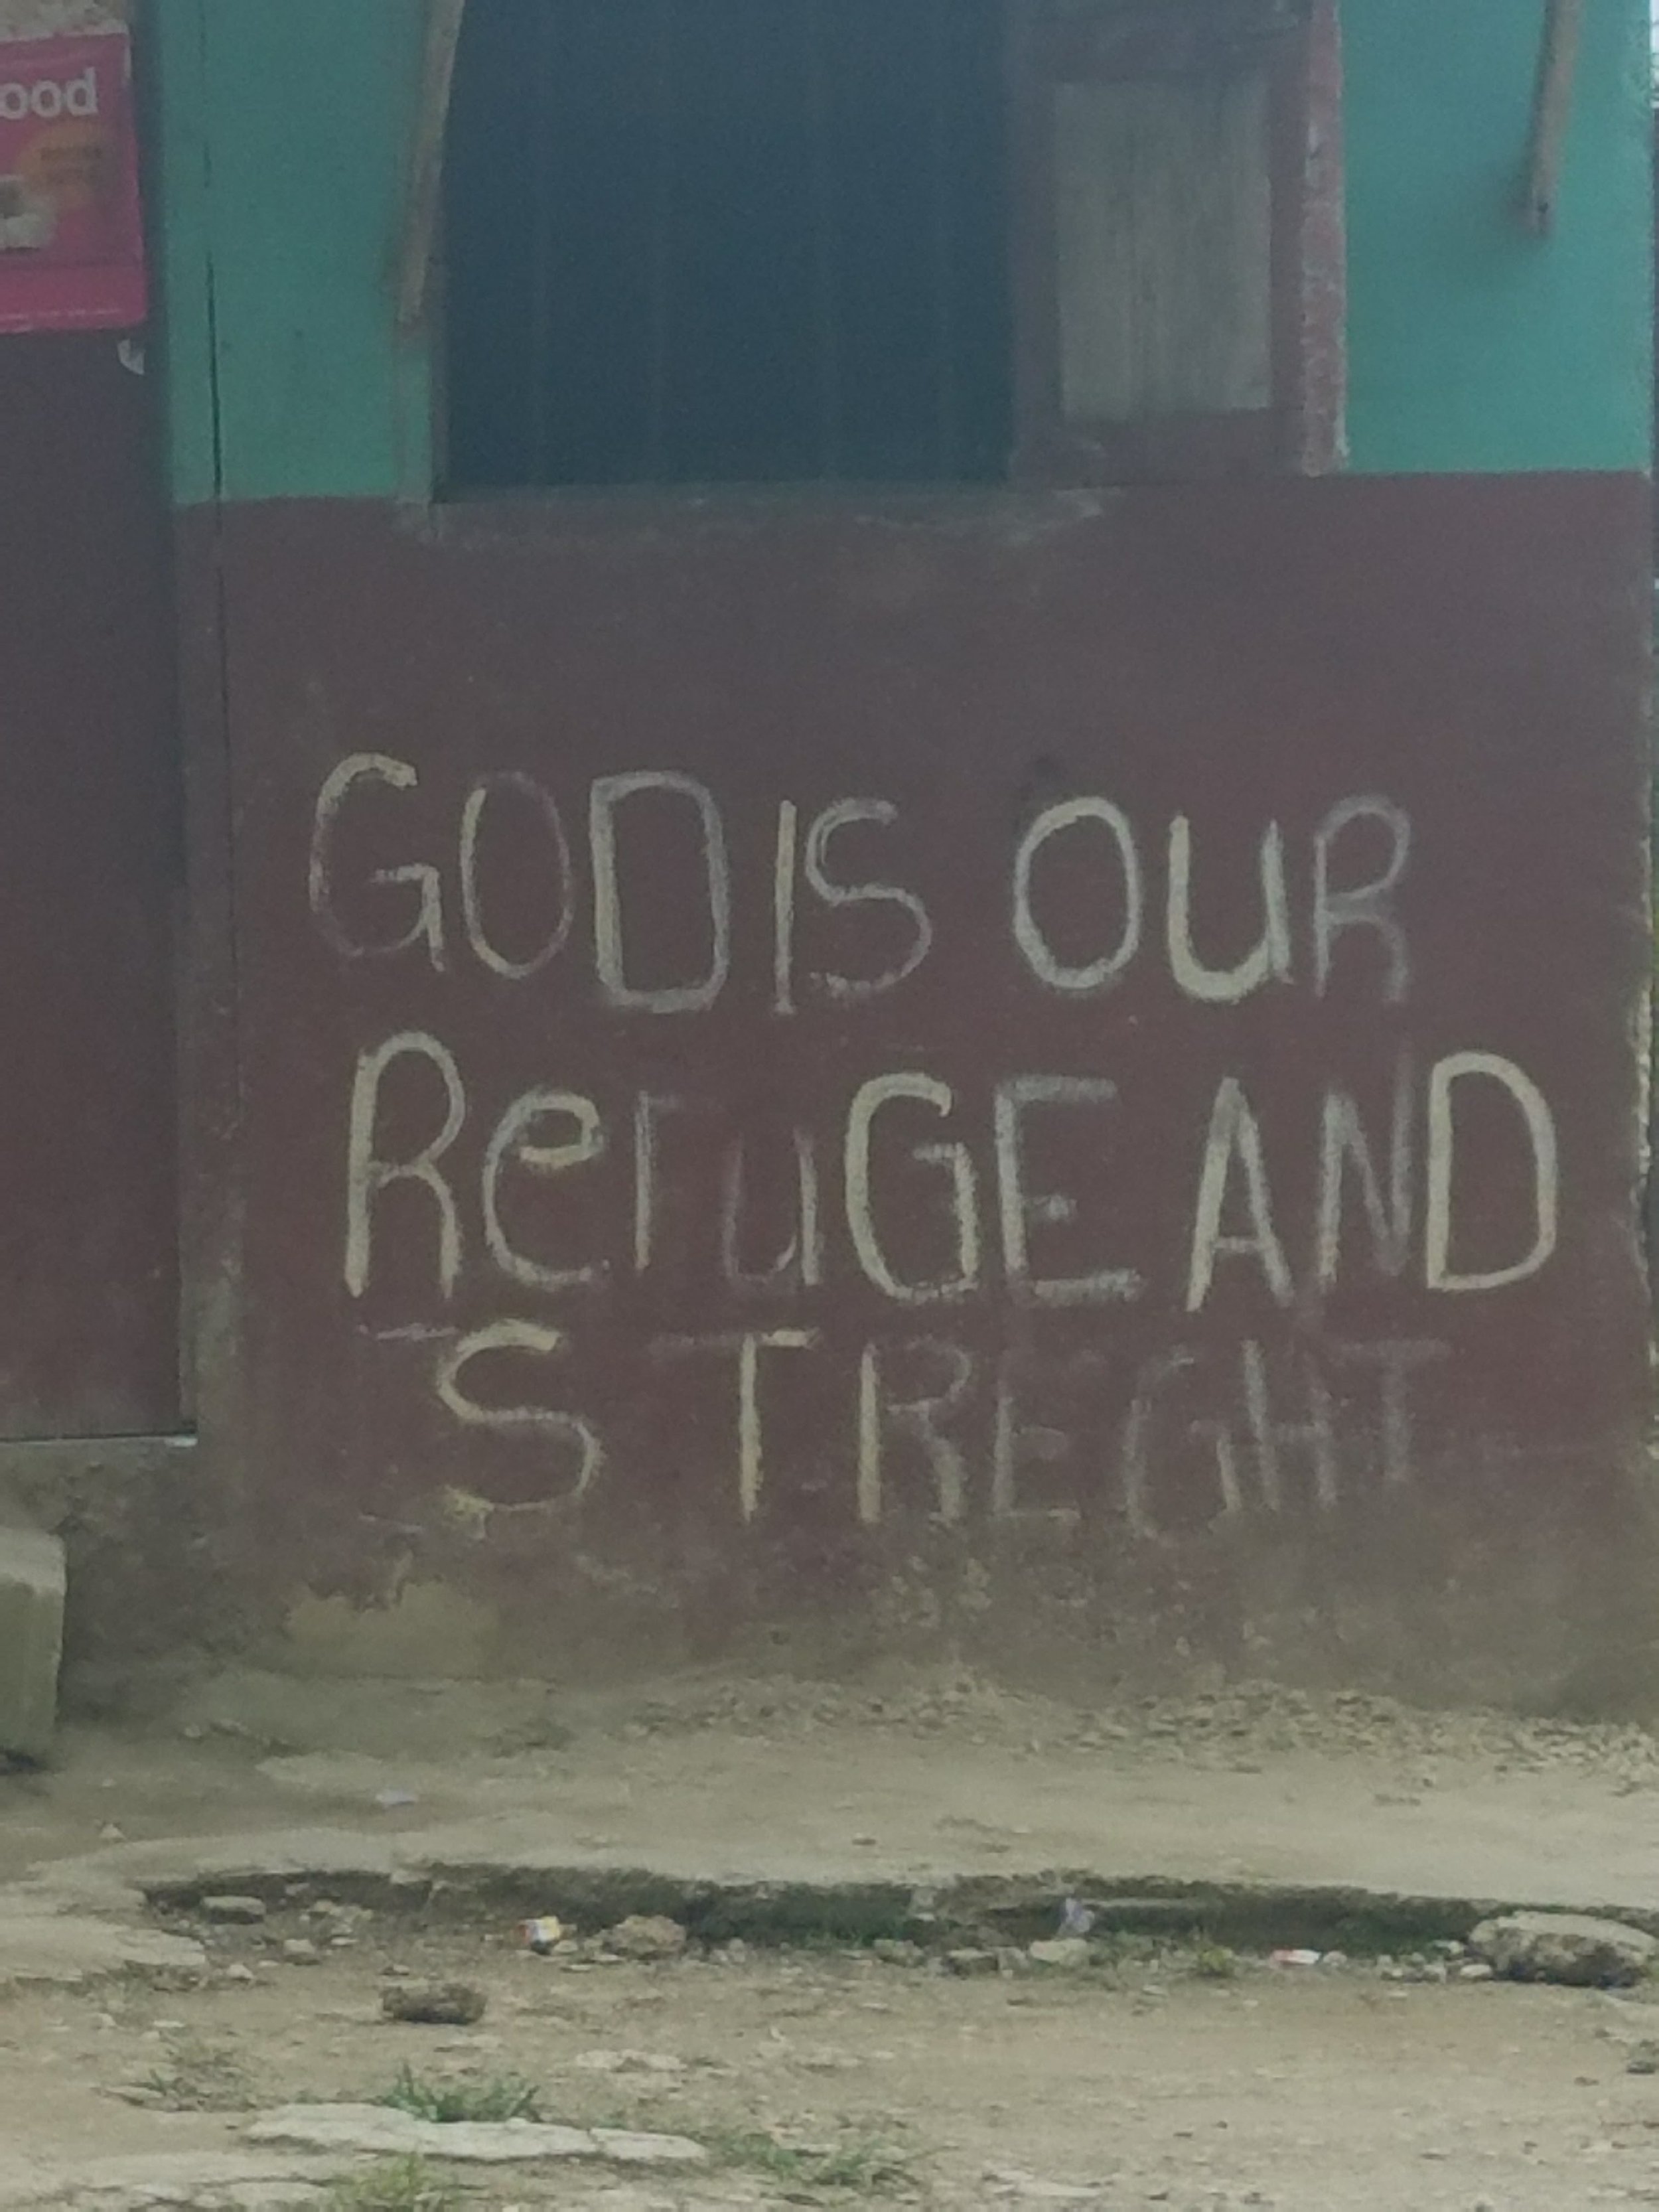 ood
GOD IS OUR
ReFuGE AND
STREGHT